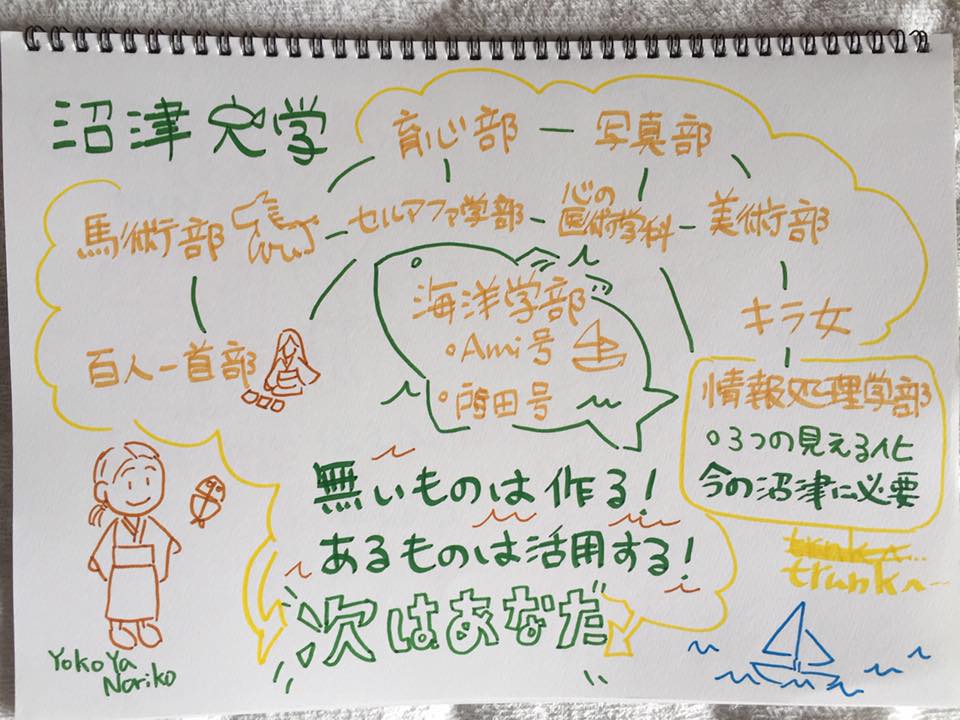 沼津
育心部
写真部
馬術部
セルマファ学部
心の
医術学科
美術部
海洋学部
Ami号
キラ女
百人一首部
情報処理学部
3つの見える化
今の沼津に必要
無いものは作る!
あるものは活用する!
次はあなた
Yokoya
Noriko